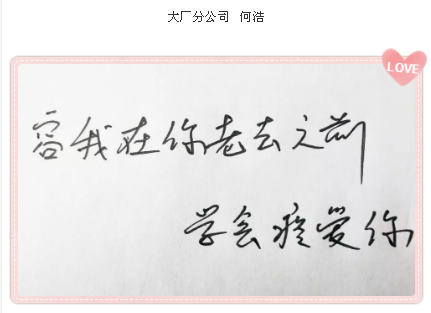 大厂分公司 何浩
LOVE
容我在你老去之前
学会疼爱你